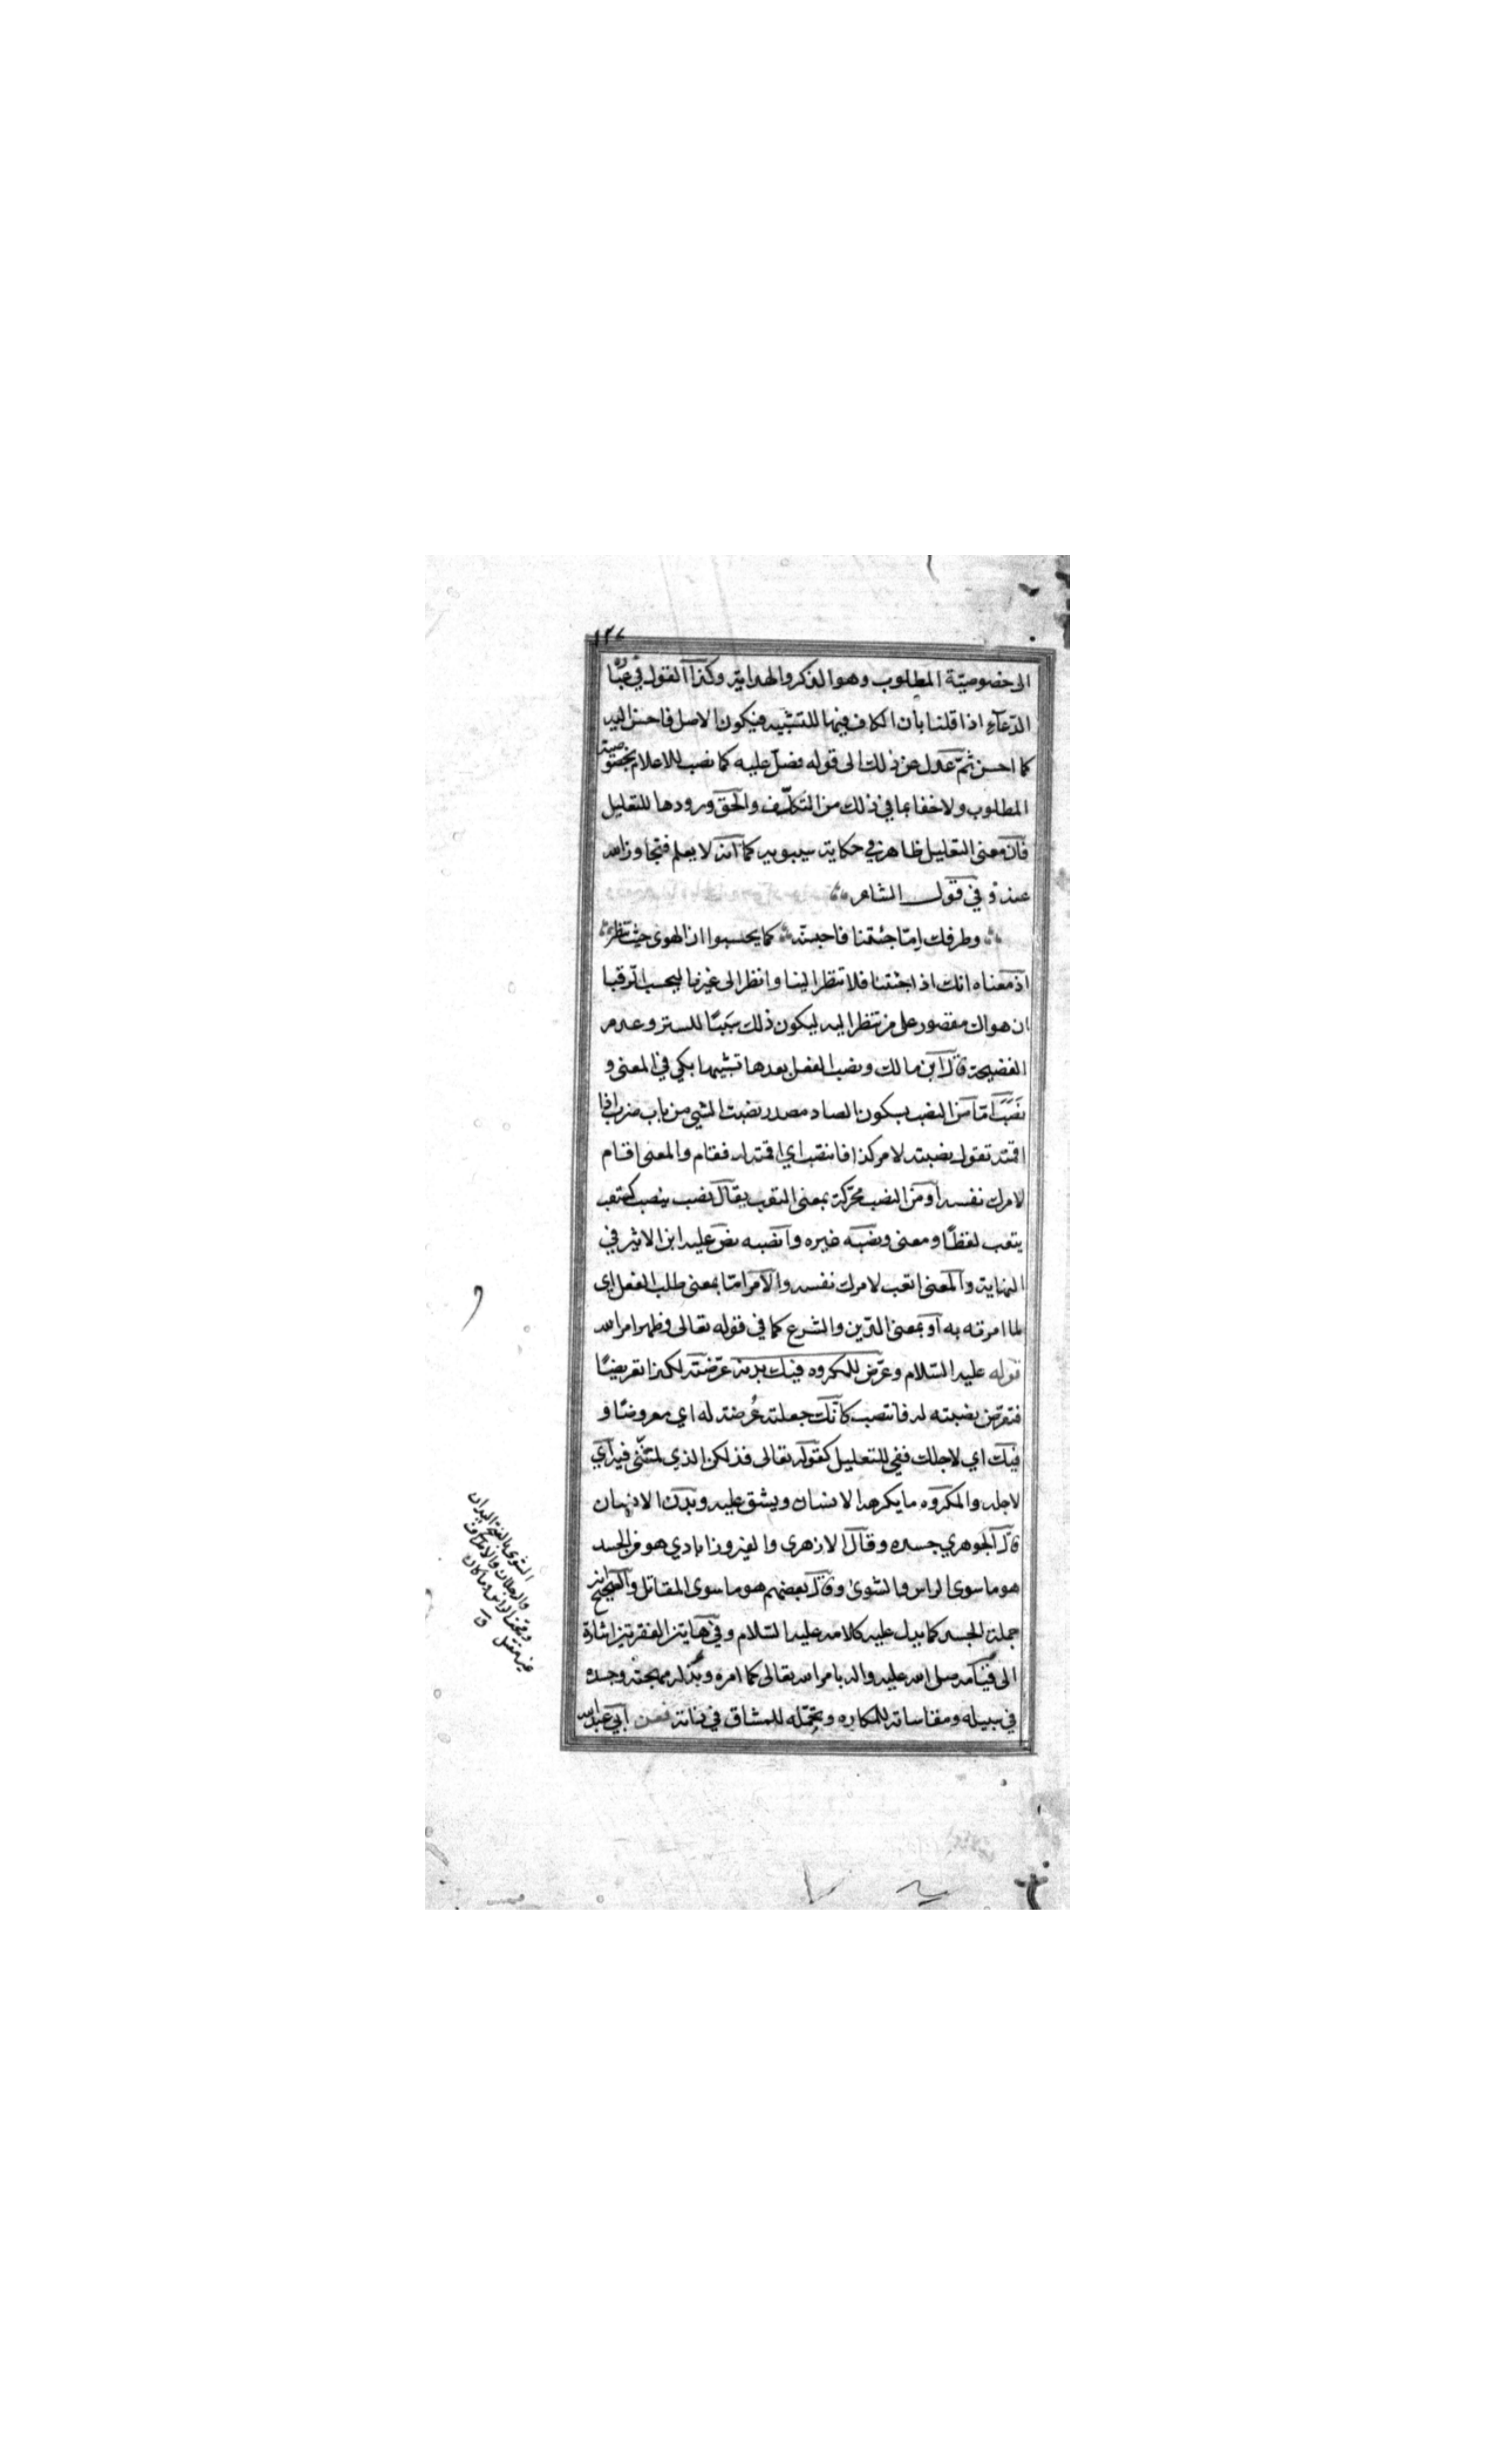 ١٢٧
الى خصوصيّة المطلوب وهو الذكر والهداية وكذا القول في عبارة
الدّعاء اذا قلنا بان الكاف فيها للتشبيه فيكون الاصل فاحسن اليه
كما احسن ثمّ عدل عن ذلك الى قوله فصلّ عليه كما نصب للاعلام بخصوصية
المطلوب ولا خفاء بما في ذلك من التكلّف والحق ورودها للتعليل
فان معنى التعليل ظاهر في حكاية سيبويه كما انه لا يعلم فتجاوز الله
عنه وفي قول الشاعر
وطرفك إمّا جئتنا فاحبسنه كما يحسبوا ان الهوى حيث تنظر
اذ معناه انك اذا جئتنا فلا تنظر الينا وانظر الى غيرنا ليحسب الرقبا
ان هواك مقصور على من تنظر اليه ليكون ذلك سببًا للستر وعدم
الفضيحة قال ابن مالك ونصب الفعل بعدها تشبيها بكي في المعنى و
نصب امّا من النصب بسكون الصاد مصدر نصبت الشي من باب ضرب اذا
اقمته تقول نصبته لامر كذا فانتصب اي اقمته له فقام والمعنى اقام
لامرك نفسه او من النصب محرّكة بمعنى التعب يقال نصب ينصب كتعب
يتعب لفظًا ومعنى ونصبه غيره وانصبه نصّ عليه ابن الاثير في
النهاية والمعنى اتعب لامرك نفسه والامر امّا بمعنى طلب الفعل اي
لما امرته به او بمعنى الدّين والشرع كما في قوله تعالى وظهر امر الله
قوله عليه السّلام وعرّض للمكروه فيك بدنه عرّضته لكذا تعريضًا
فتعرّض نصبته له فانتصب كانّك جعلته عُرضة له اي معروضًا و
فيك اي لاجلك ففي للتعليل كقوله تعالى فذلكن الذي لمتنّني فيه اي
لاجله والمكروه ما يكرهه الانسان ويشق عليه وبدن الانسان
قال الجوهري جسده وقال الازهري والفيروزابادي هو من الجسد
هو ما سوى الراس والشوى وقال بعضهم هو ما سوى المقاتل والصحيح انه
جملة الجسد كما يدل عليه كلامه عليه السّلام وفي هاتين الفقرتين اشارة
الى قيامه صلى الله عليه واله بامر الله تعالى كما امره وبذله مهجته وجسده
في سبيله ومقاساته للمكاره وتحمّله للمشاق في ذاته فعن ابي عبد الله
الشوى بالفتح اليدان
والرجلان والاطراف
وقحف الراس وما كان
غير مقتل ق